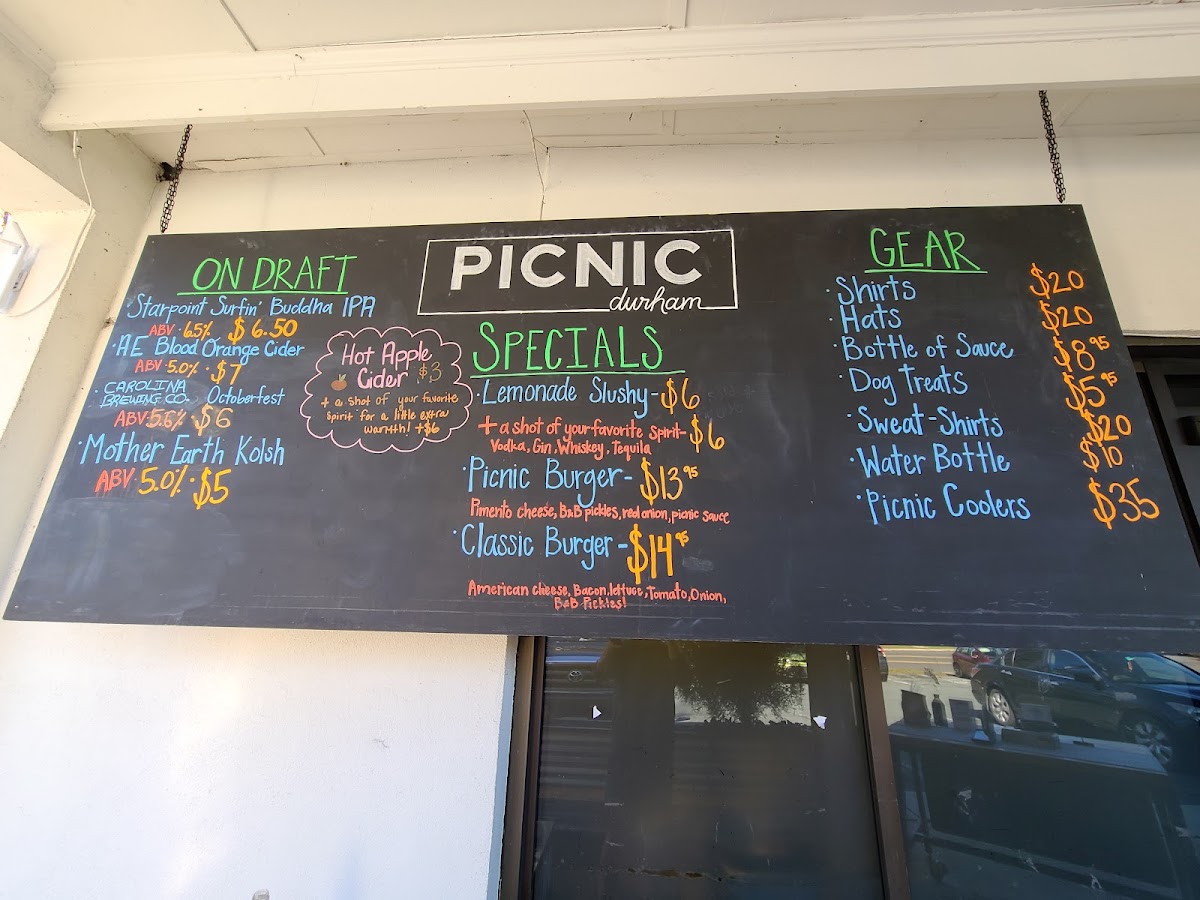 PICNIC
durham
ON DRAFT
· Starpoint Surfin' Buddha IPA
ABV · 6.5% $6.50
· AE Blood Orange Cider
ABV · 5.0% · $7
· CAROLINA BREWING CO. Octoberfest
ABV · 5.6% · $6
· Mother Earth Kolsh
ABV · 5.0% · $5
Hot Apple
Cider $3
+ a shot of your favorite
spirit for a little extra
warmth! +$6
SPECIALS
· Lemonade Slushy - $6
+ a shot of your favorite spirit - $6
Vodka, Gin, Whiskey, Tequila
· Picnic Burger - $13.95
Pimento cheese, B&B pickles, red onion, picnic sauce
· Classic Burger - $14.95
American cheese, Bacon, lettuce, Tomato, Onion,
B&B Pickles!
GEAR
· Shirts $20
· Hats $20
· Bottle of Sauce $8.95
· Dog Treats $5.95
· Sweat-Shirts $20
· Water Bottle $10
· Picnic Coolers $35